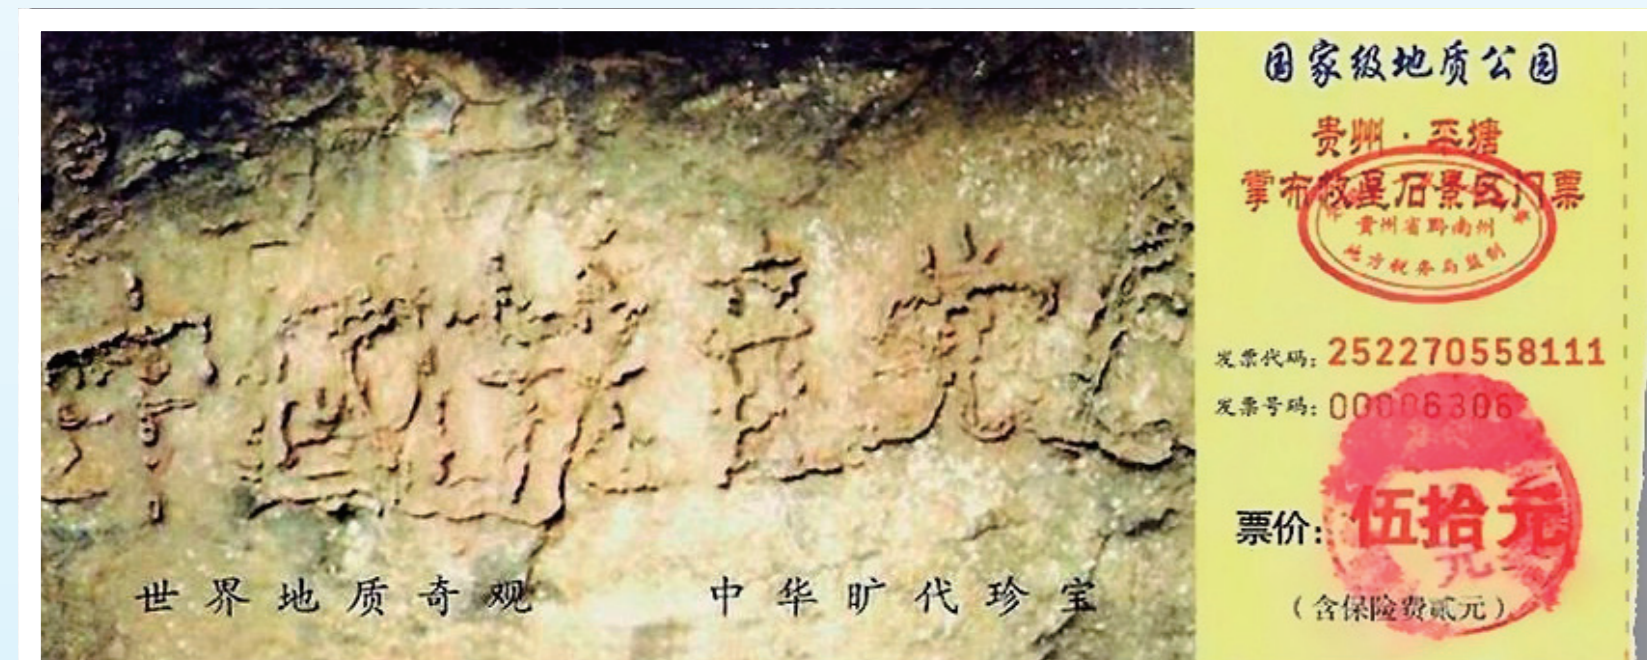 中國共産党亡
世界地质奇观 中华旷代珍宝
国家级地质公园
贵州·平塘
掌布救星石景区门票
貴州省黔南州
地方税务局监制
发票代码:252270558111
发票号码:00006306
票价:伍拾元
(含保险费贰元)